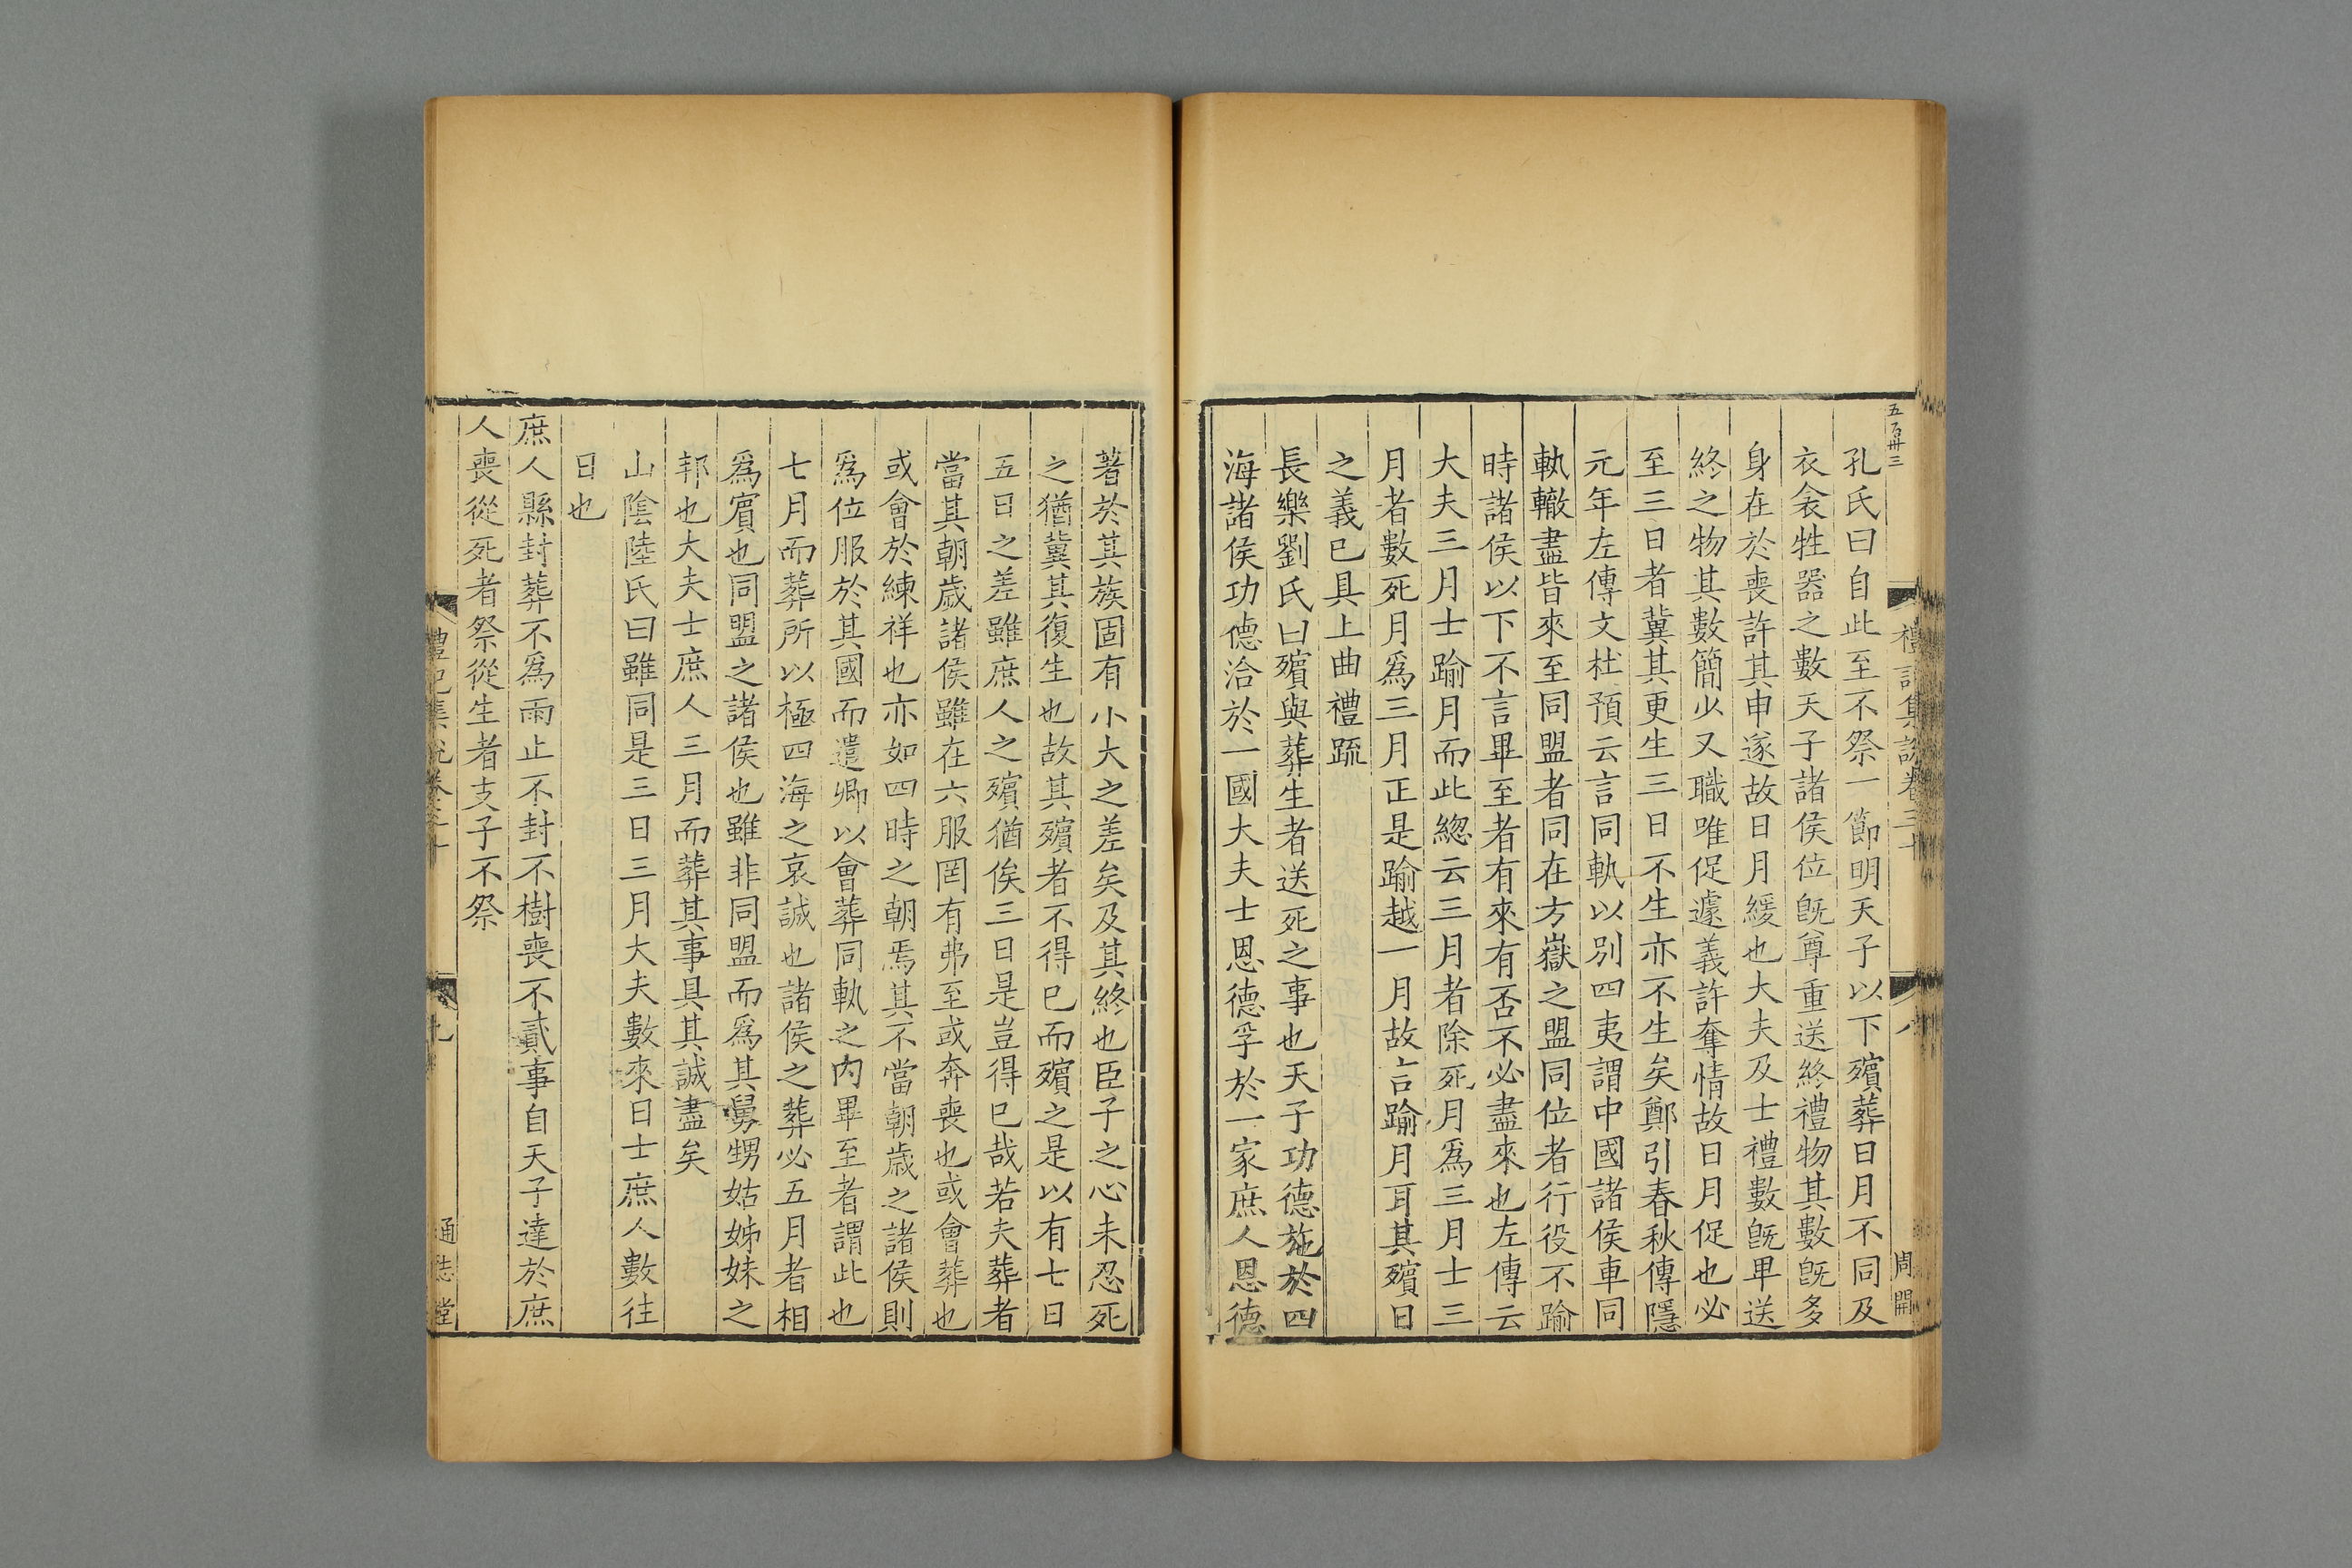 五百卅三
禮記集說卷三十
八
周開
孔氏曰自此至不祭一節明天子以下殯葬日月不同及
衣衾牲器之數天子諸侯位旣尊重送終禮物其數旣多
身在於喪許其申遂故日月緩也大夫及士禮數旣卑送
終之物其數簡少又職唯促遽義許奪情故日月促也必
至三日者冀其更生三日不生亦不生矣鄭引春秋傳隱
元年左傳文杜預云言同軌以別四夷謂中國諸侯車同
軌轍盡皆來至同盟者同在方嶽之盟同位者行役不踰
時諸侯以下不言畢至者有來有否不必盡來也左傳云
大夫三月士踰月而此緫云三月者除死月爲三月士三
月者數死月爲三月正是踰越一月故言踰月耳其殯日
之義已具上曲禮疏
長樂劉氏曰殯與葬生者送死之事也天子功德施於四
海諸侯功德洽於一國大夫士恩德孚於一家庶人恩德
著於其族固有小大之差矣及其終也臣子之心未忍死
之猶冀其復生也故其殯者不得已而殯之是以有七日
五日之差雖庶人之殯猶俟三日是豈得已哉若夫葬者
當其朝歲諸侯雖在六服罔有弗至或奔喪也或會葬也
或會於練祥也亦如四時之朝焉其不當朝歲之諸侯則
爲位服於其國而遣卿以會葬同軌之內畢至者謂此也
七月而葬所以極四海之哀誠也諸侯之葬必五月者相
爲賓也同盟之諸侯也雖非同盟而爲其舅甥姑姊妹之
邦也大夫士庶人三月而葬其事具其誠盡矣
山陰陸氏曰雖同是三日三月大夫數來日士庶人數往
日也
庶人縣封葬不爲雨止不封不樹喪不貳事自天子達於庶
人喪從死者祭從生者支子不祭
禮記集說卷三十
九
通志堂